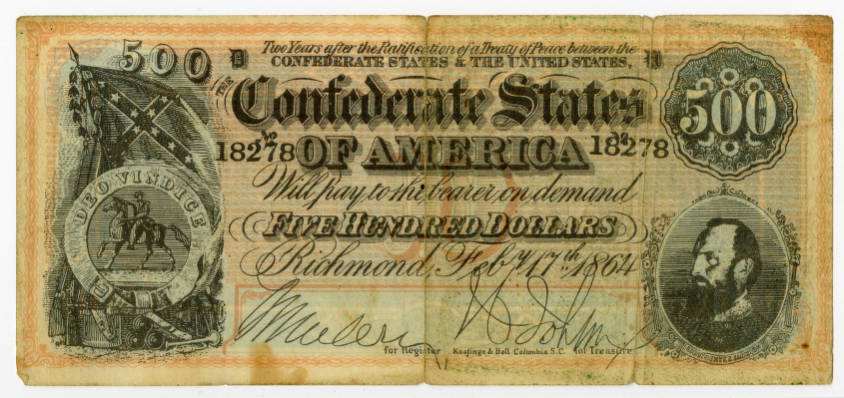 500 D Two Years after the Ratification of a Treaty of Peace between the D
CONFEDERATE STATES & THE UNITED STATES,
THE
Confederate States
500
18278 OF AMERICA 18278
DEO VINDICE
Will pay to the bearer on demand
FIVE HUNDRED DOLLARS
Richmond, Feby. 17th. 1864
for Register Keatinge & Ball, Columbia S.C. for Treasurer